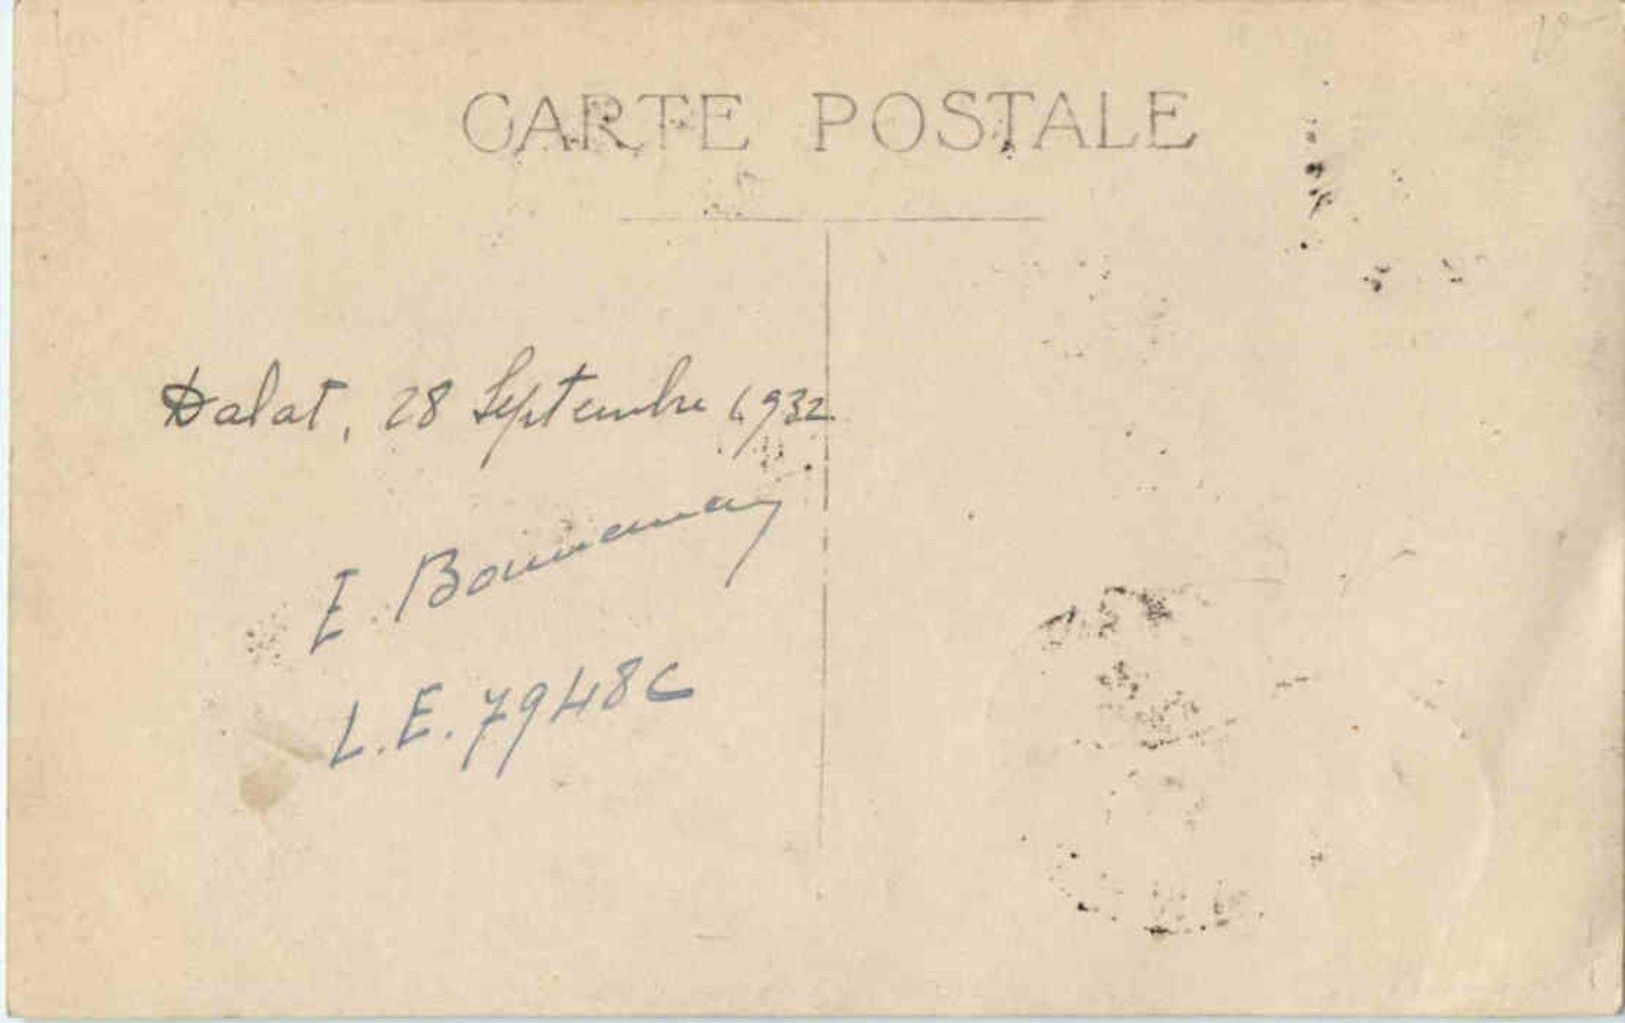 CARTE POSTALE
Dalat, 28 Septembre 1932
E.
L.E. 7948C